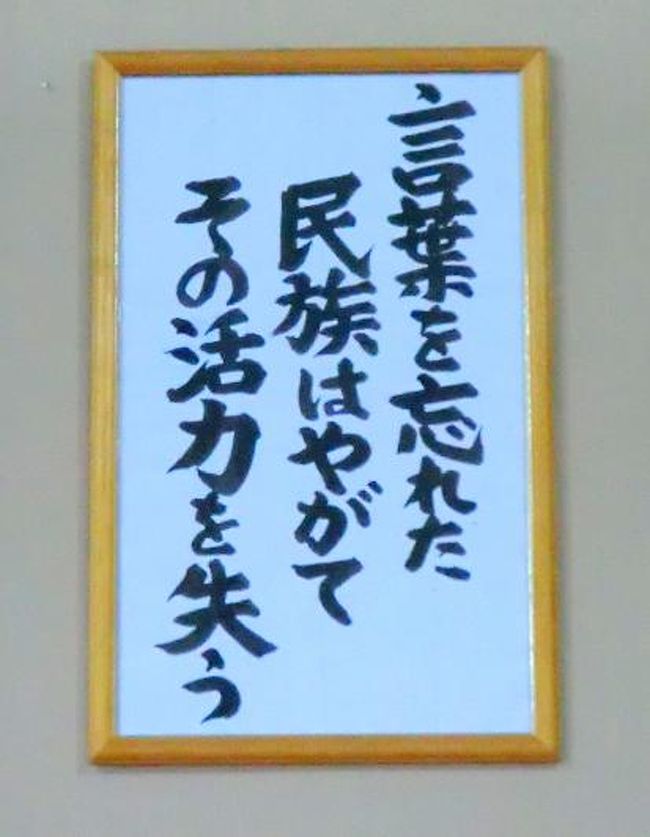 言葉を忘れた
民族はやがて
その活力を失う